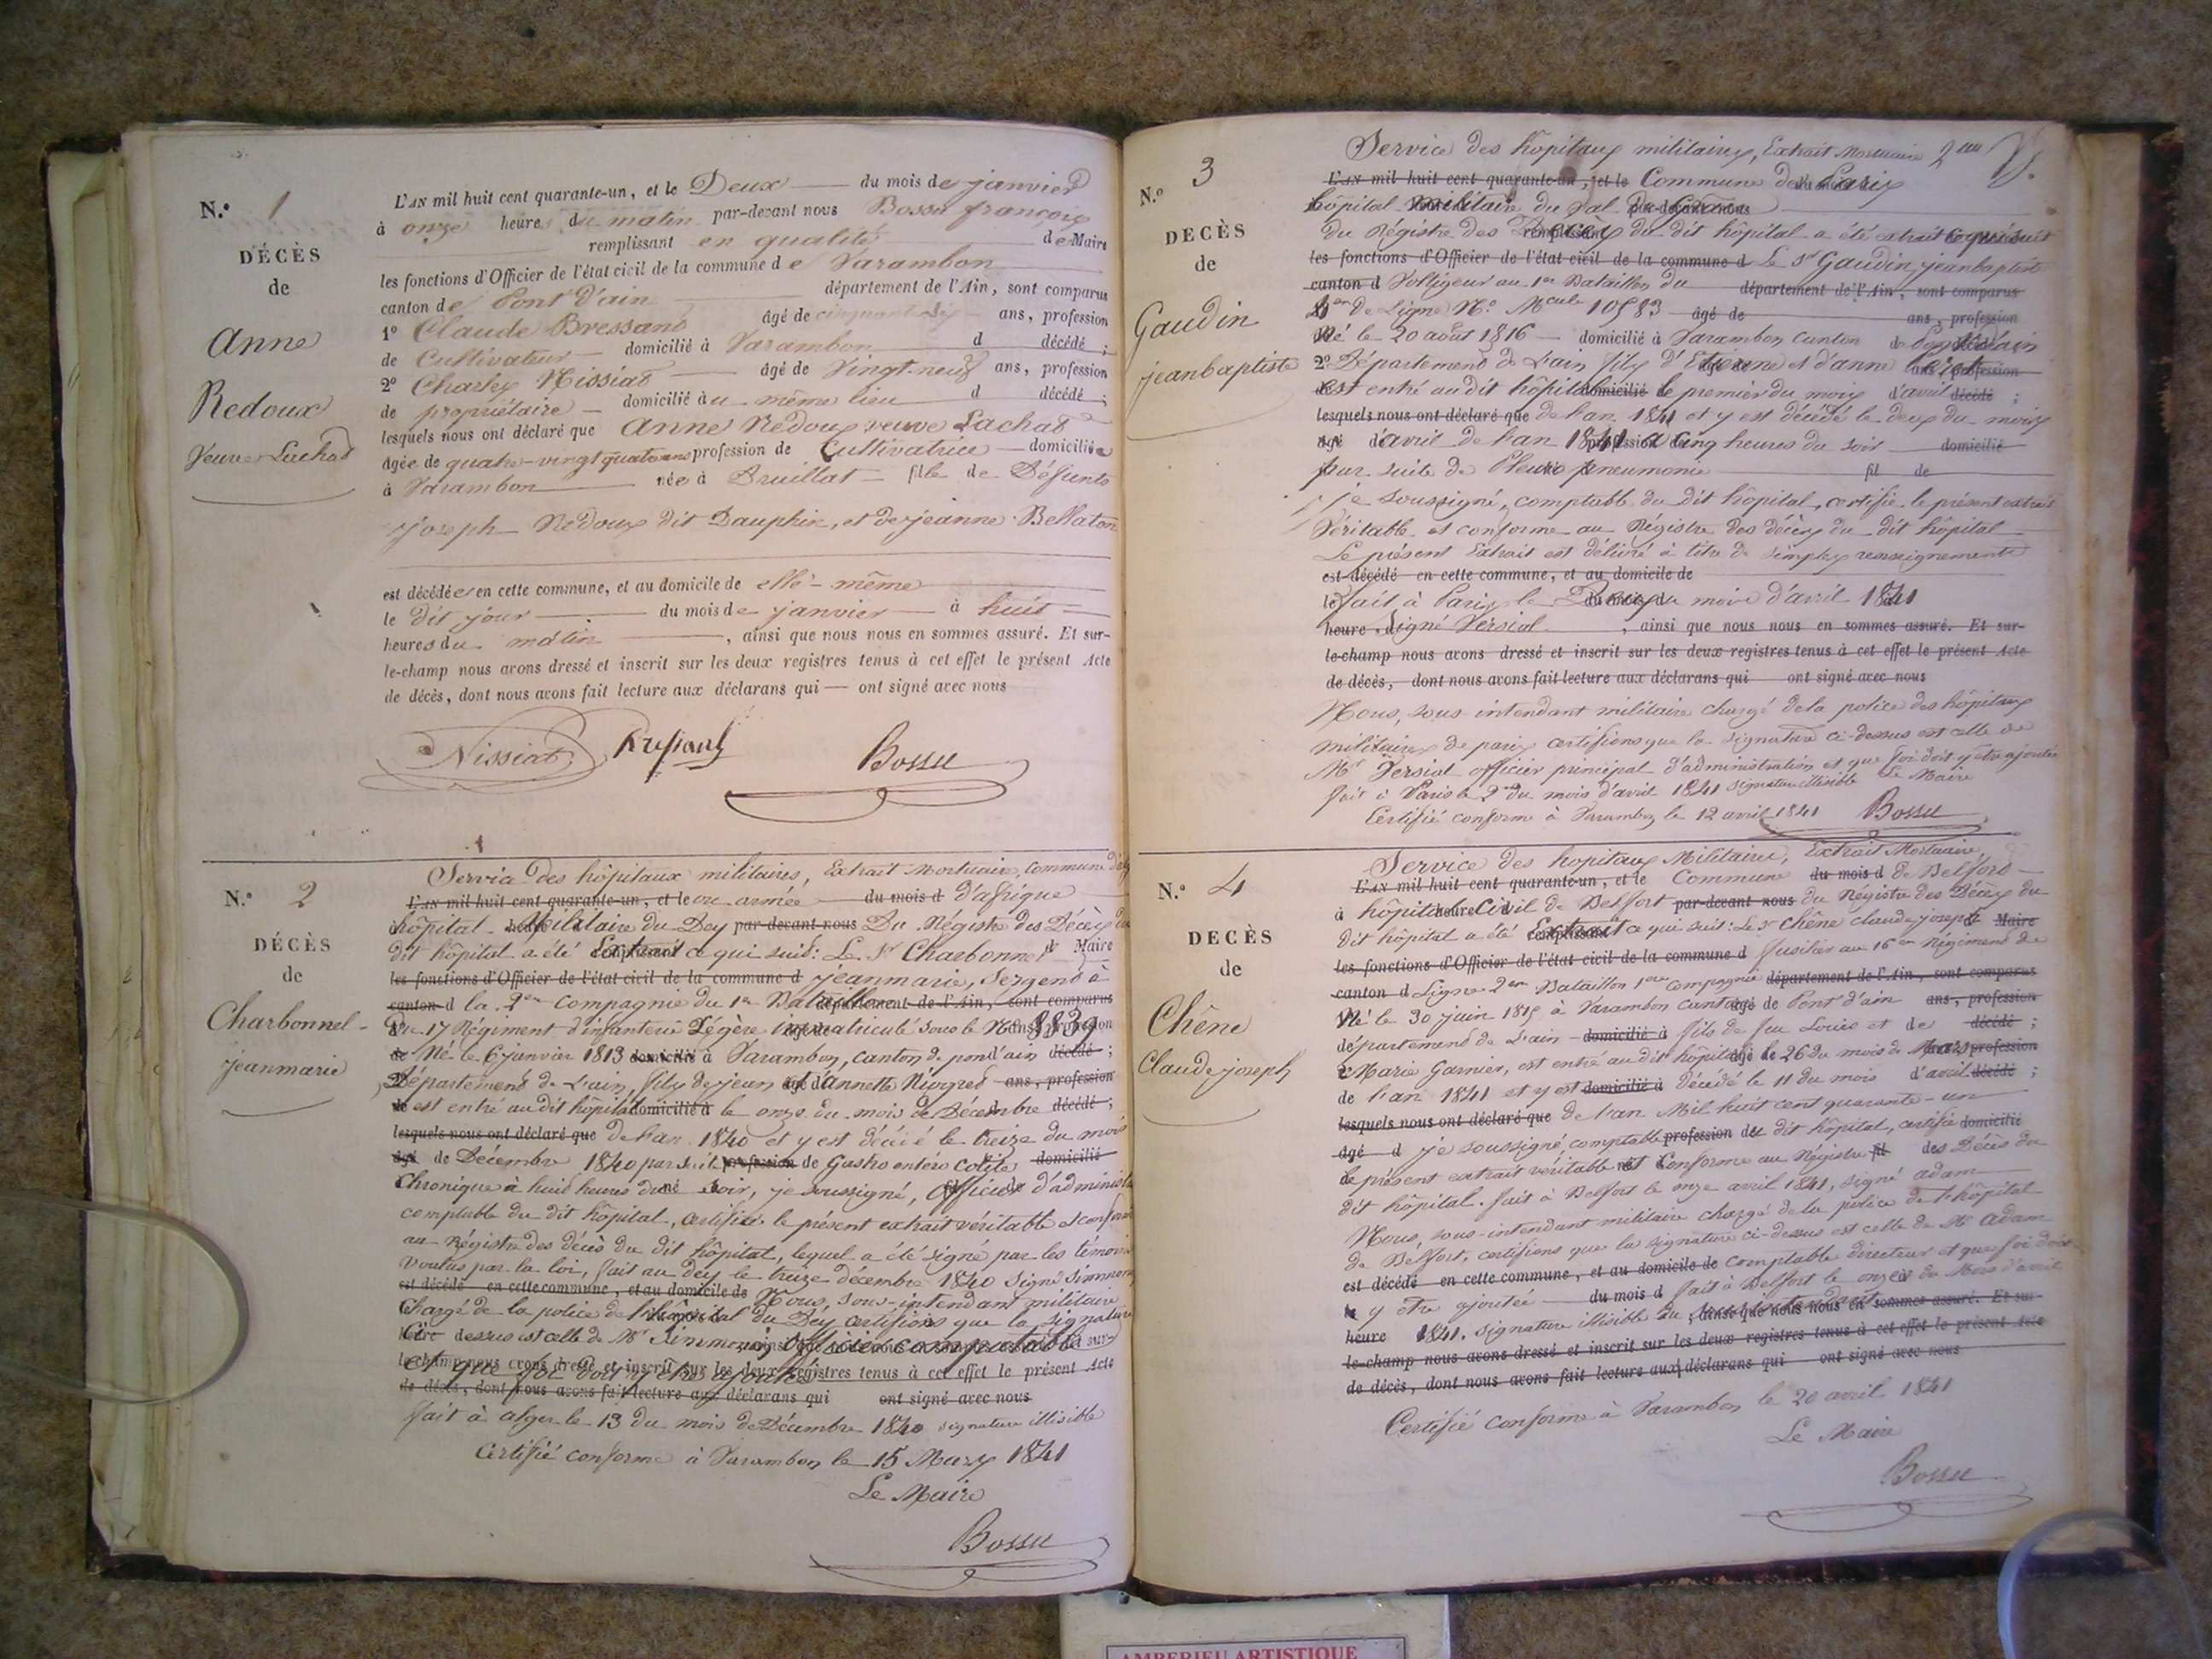 N.º 1
DÉCÈS
de
Anne
Redoux
Veuve Lachat
L'AN mil huit cent quarante-un, et le Deux du mois de janvier
à onze heures du matin par-devant nous Bossu françois
remplissant en qualité de Maire
les fonctions d'Officier de l'état civil de la commune de Varambon
canton de Pont d'ain département de l'Ain, sont comparus
1º Claude Bressand âgé de cinquante six ans, profession
de Cultivateur domicilié à Varambon d décédé ;
2º Charles Nissiat âgé de Vingt-neuf ans, profession
de propriétaire domicilié au même lieu d décédé ;
lesquels nous ont déclaré que Anne Redoux veuve Lachat
âgée de quatre-vingt quatorze ans profession de Cultivatrice domiciliée
à Varambon née à Druillat fille de Défunts
joseph Redoux dit Dauphin, et de jeanne Bellaton
est décédée en cette commune, et au domicile de elle-même
le dit jour du mois de janvier à huit
heures du matin, ainsi que nous nous en sommes assuré. Et sur-
le-champ nous avons dressé et inscrit sur les deux registres tenus à cet effet le présent Acte
de décès, dont nous avons fait lecture aux déclarans qui ont signé avec nous
Nissiat Bressand Bossu
N.º 2
DÉCÈS
de
Charbonnel
jeanmarie
Service des hôpitaux militaires, Extrait Mortuaire, Commune
L'AN mil huit cent quarante-un, et le armée du mois d d'afrique
hôpital Militaire du Dey par-devant nous Du Régistre des Décès du
dit hôpital a été Extrait ce qui suit: Le Sr Charbonnel Maire
les fonctions d'Officier de l'état civil de la commune d jeanmarie, Sergent à
canton d la 2em Compagnie du 1er Bataillon département de l'Ain, sont comparus
du 17 Régiment d'infanterie Légère immatriculé sous le Nº
de Né le 6 janvier 1813 domicilié à Varambon, canton de pont d'ain décédé ;
Département de L'ain, fils de jean et d'annette ans, profession
de est entré au dit hôpital domicilié à le onze du mois de Décembre décédé ;
lesquels nous ont déclaré que de l'an 1840 et y est décédé le treize du mois
âgé de Décembre 1840 par suite profession de Gastro entéro colite domicilié
Chronique à huit heures du soir, je soussigné, officier d'administ
comptable du dit hôpital, certifie le présent extrait véritable et conforme
au Régistre des décès du dit hôpital, lequel a été signé par les témoins
Voulus par la loi, fait au dey le treize décembre 1840 Signé
est décédé en cette commune, et au domicile de Nous, sous-intendant militaire
Chargé de la police de l'hôpital du Dey certifions que la signature
dessus est celle de Mr officier comptable
et que foi doit y être ajoutée
le-champ nous avons dressé et inscrit sur les deux registres tenus à cet effet le présent Acte
de décès, dont nous avons fait lecture aux déclarans qui ont signé avec nous
fait à alger le 13 du mois de Décembre 1840 signature illisible
Certifié conforme à Varambon le 15 Mars 1841
Le Maire
Bossu
N.º 3
DECÈS
de
Gaudin
jeanbaptiste
Service des hôpitaux militaires, Extrait Mortuaire
L'AN mil huit cent quarante-un, et le Commune de Paris
hôpital militaire du Val de Grace par-devant nous
Du Régistre des Décès du dit hôpital a été extrait ce qui suit
les fonctions d'Officier de l'état civil de la commune d Le Sr Gaudin jeanbaptiste
canton d Voltigeur au 1er Bataillon du département de l'Ain, sont comparus
de Ligne Nº Mcule 10583 âgé de ans, profession
Né le 20 août 1816 domicilié à Varambon canton de
2º Département de L'ain fils d'Etienne et d'anne
est entré au dit hôpital domicilié le premier du mois d'avril décédé ;
lesquels nous ont déclaré que de l'an 1841 et y est décédé le deux du mois
âgé d'avril de l'an 1841 profession à cinq heures du soir domicilié
par suite de Pleuro pneumonie fil de
je soussigné, comptable du dit hôpital, certifie le présent extrait
Véritable et conforme au Régistre des décès du dit hôpital
Le présent Extrait est délivré à titre de simples renseignements
est décédé en cette commune, et au domicile de
fait à Paris le Deux du mois d'avril 1841
heure Signé Versial, ainsi que nous nous en sommes assuré. Et sur-
le-champ nous avons dressé et inscrit sur les deux registres tenus à cet effet le présent Acte
de décès, dont nous avons fait lecture aux déclarans qui ont signé avec nous
Nous, sous intendant militaire chargé de la police des hôpitaux
militaires de paris certifions que la signature ci-dessus est celle de
Mr Versial officier principal d'administration et que foi doit y être ajoutée
fait à Paris le 2 du mois d'avril 1841 signature illisible Le Maire
Certifié conforme à Varambon le 12 avril 1841 Bossu
N.º 4
DECÈS
de
Chêne
Claude joseph
Service des hopitaux Militaires, Extrait Mortuaire,
L'AN mil huit cent quarante-un, et le Commune du mois d de Belfort
à hôpital Civil de Belfort par-devant nous du Régistre des Décès du
dit hôpital a été Extrait ce qui suit: Le Sr Chêne claude joseph Maire
les fonctions d'Officier de l'état civil de la commune d fusilier au 16em Régiment de
canton d Ligne 2em Bataillon 1ere Compagnie département de l'Ain, sont comparus
Né le 30 juin 1815 à Varambon Canton de Pont d'ain ans, profession
département de L'ain domicilié à fils de feu Louis et de décédé ;
Marie Garnier, est entré au dit hôpital le 26 du mois de Mars profession
de l'an 1841 et y est domicilié à décédé le 11 du mois d'avril décédé ;
lesquels nous ont déclaré que de l'an Mil huit cent quarante-un
âgé d je soussigné, comptable profession du dit hôpital, certifie domicilié
le présent extrait véritable et Conforme au Régistre fil des Décès du
dit hôpital. fait à Belfort le onze avril 1841, signé adam
Nous, sous-intendant militaire chargé de la police de l'hôpital
de Belfort, certifions que la signature ci-dessus est celle de Mr adam
est décédé en cette commune, et au domicile de comptable directeur et que foi doit
y etre ajoutée du mois d fait à Belfort le onze du Mois d'avril
heure 1841. signature illisible ainsi que nous nous en sommes assuré. Et sur-
le-champ nous avons dressé et inscrit sur les deux registres tenus à cet effet le présent Acte
de décès, dont nous avons fait lecture aux déclarans qui ont signé avec nous
Certifié conforme à Varambon le 20 avril 1841
Le Maire
Bossu
AMBERIEU ARTISTIQUE